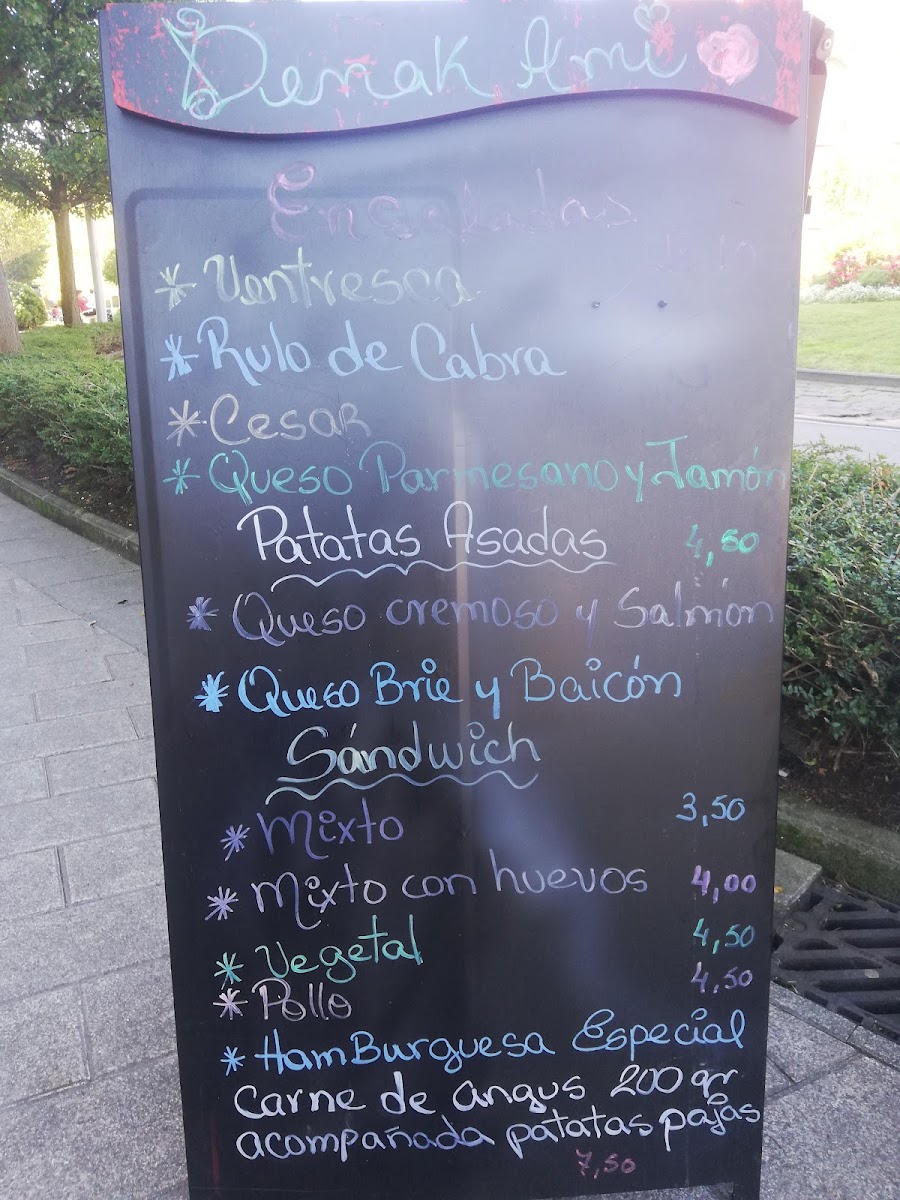 Denak Ami
Ensaladas
* Ventresca
* Rulo de Cabra
* Cesar
* Queso Parmesano y Jamón
Patatas Asadas 4,50
* Queso cremoso y Salmón
* Queso Brie y Baicón
Sándwich
* Mixto 3,50
* Mixto con huevos 4,00
* Vegetal 4,50
* Pollo 4,50
* HamBurguesa Especial
Carne de angus 200 gr
acompañada patatas pajas
7,50